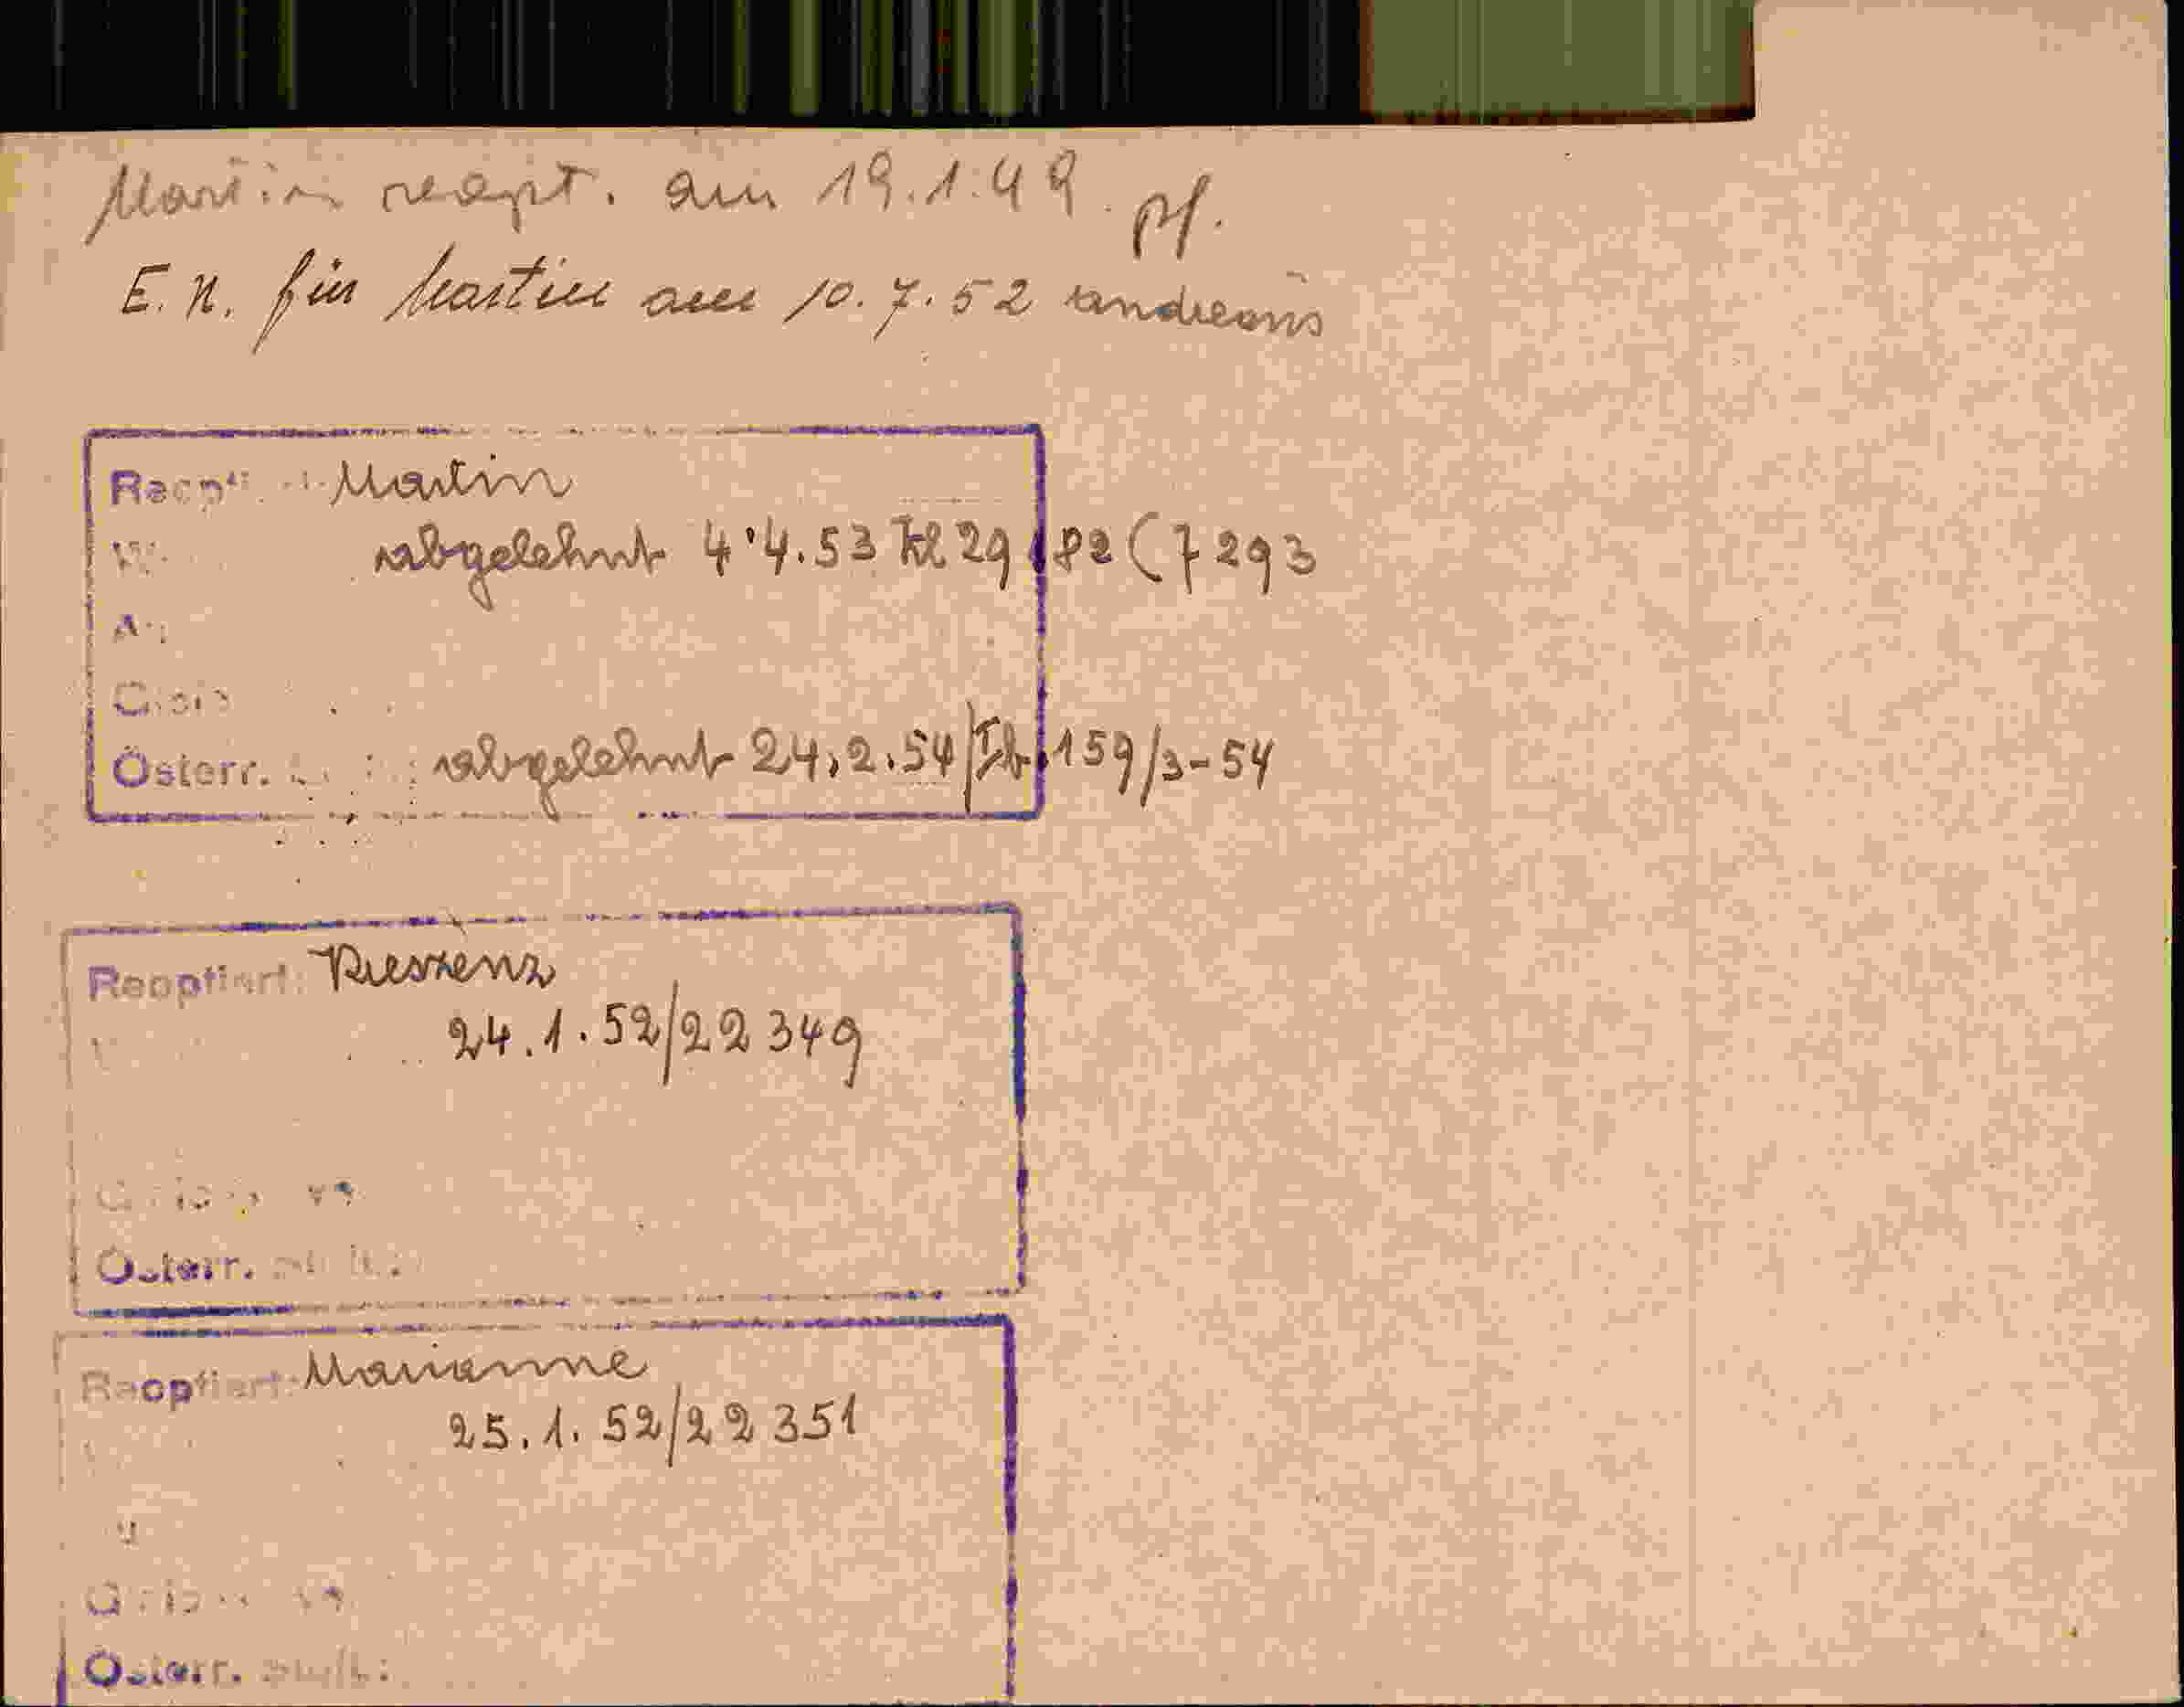 Martin reopt. am 19.1.49. pf.
E. N. für Martin am 10.7.52
Martin
abgelehnt 4.4.53 Kl 29 82 (7293
Österr.
abgelehnt 24.2.54/Ib 159/3-54
Reoptiert:
24.1.52/22349
Österr.
Reoptiert: Marianne
25.1.52/22351
Österr.